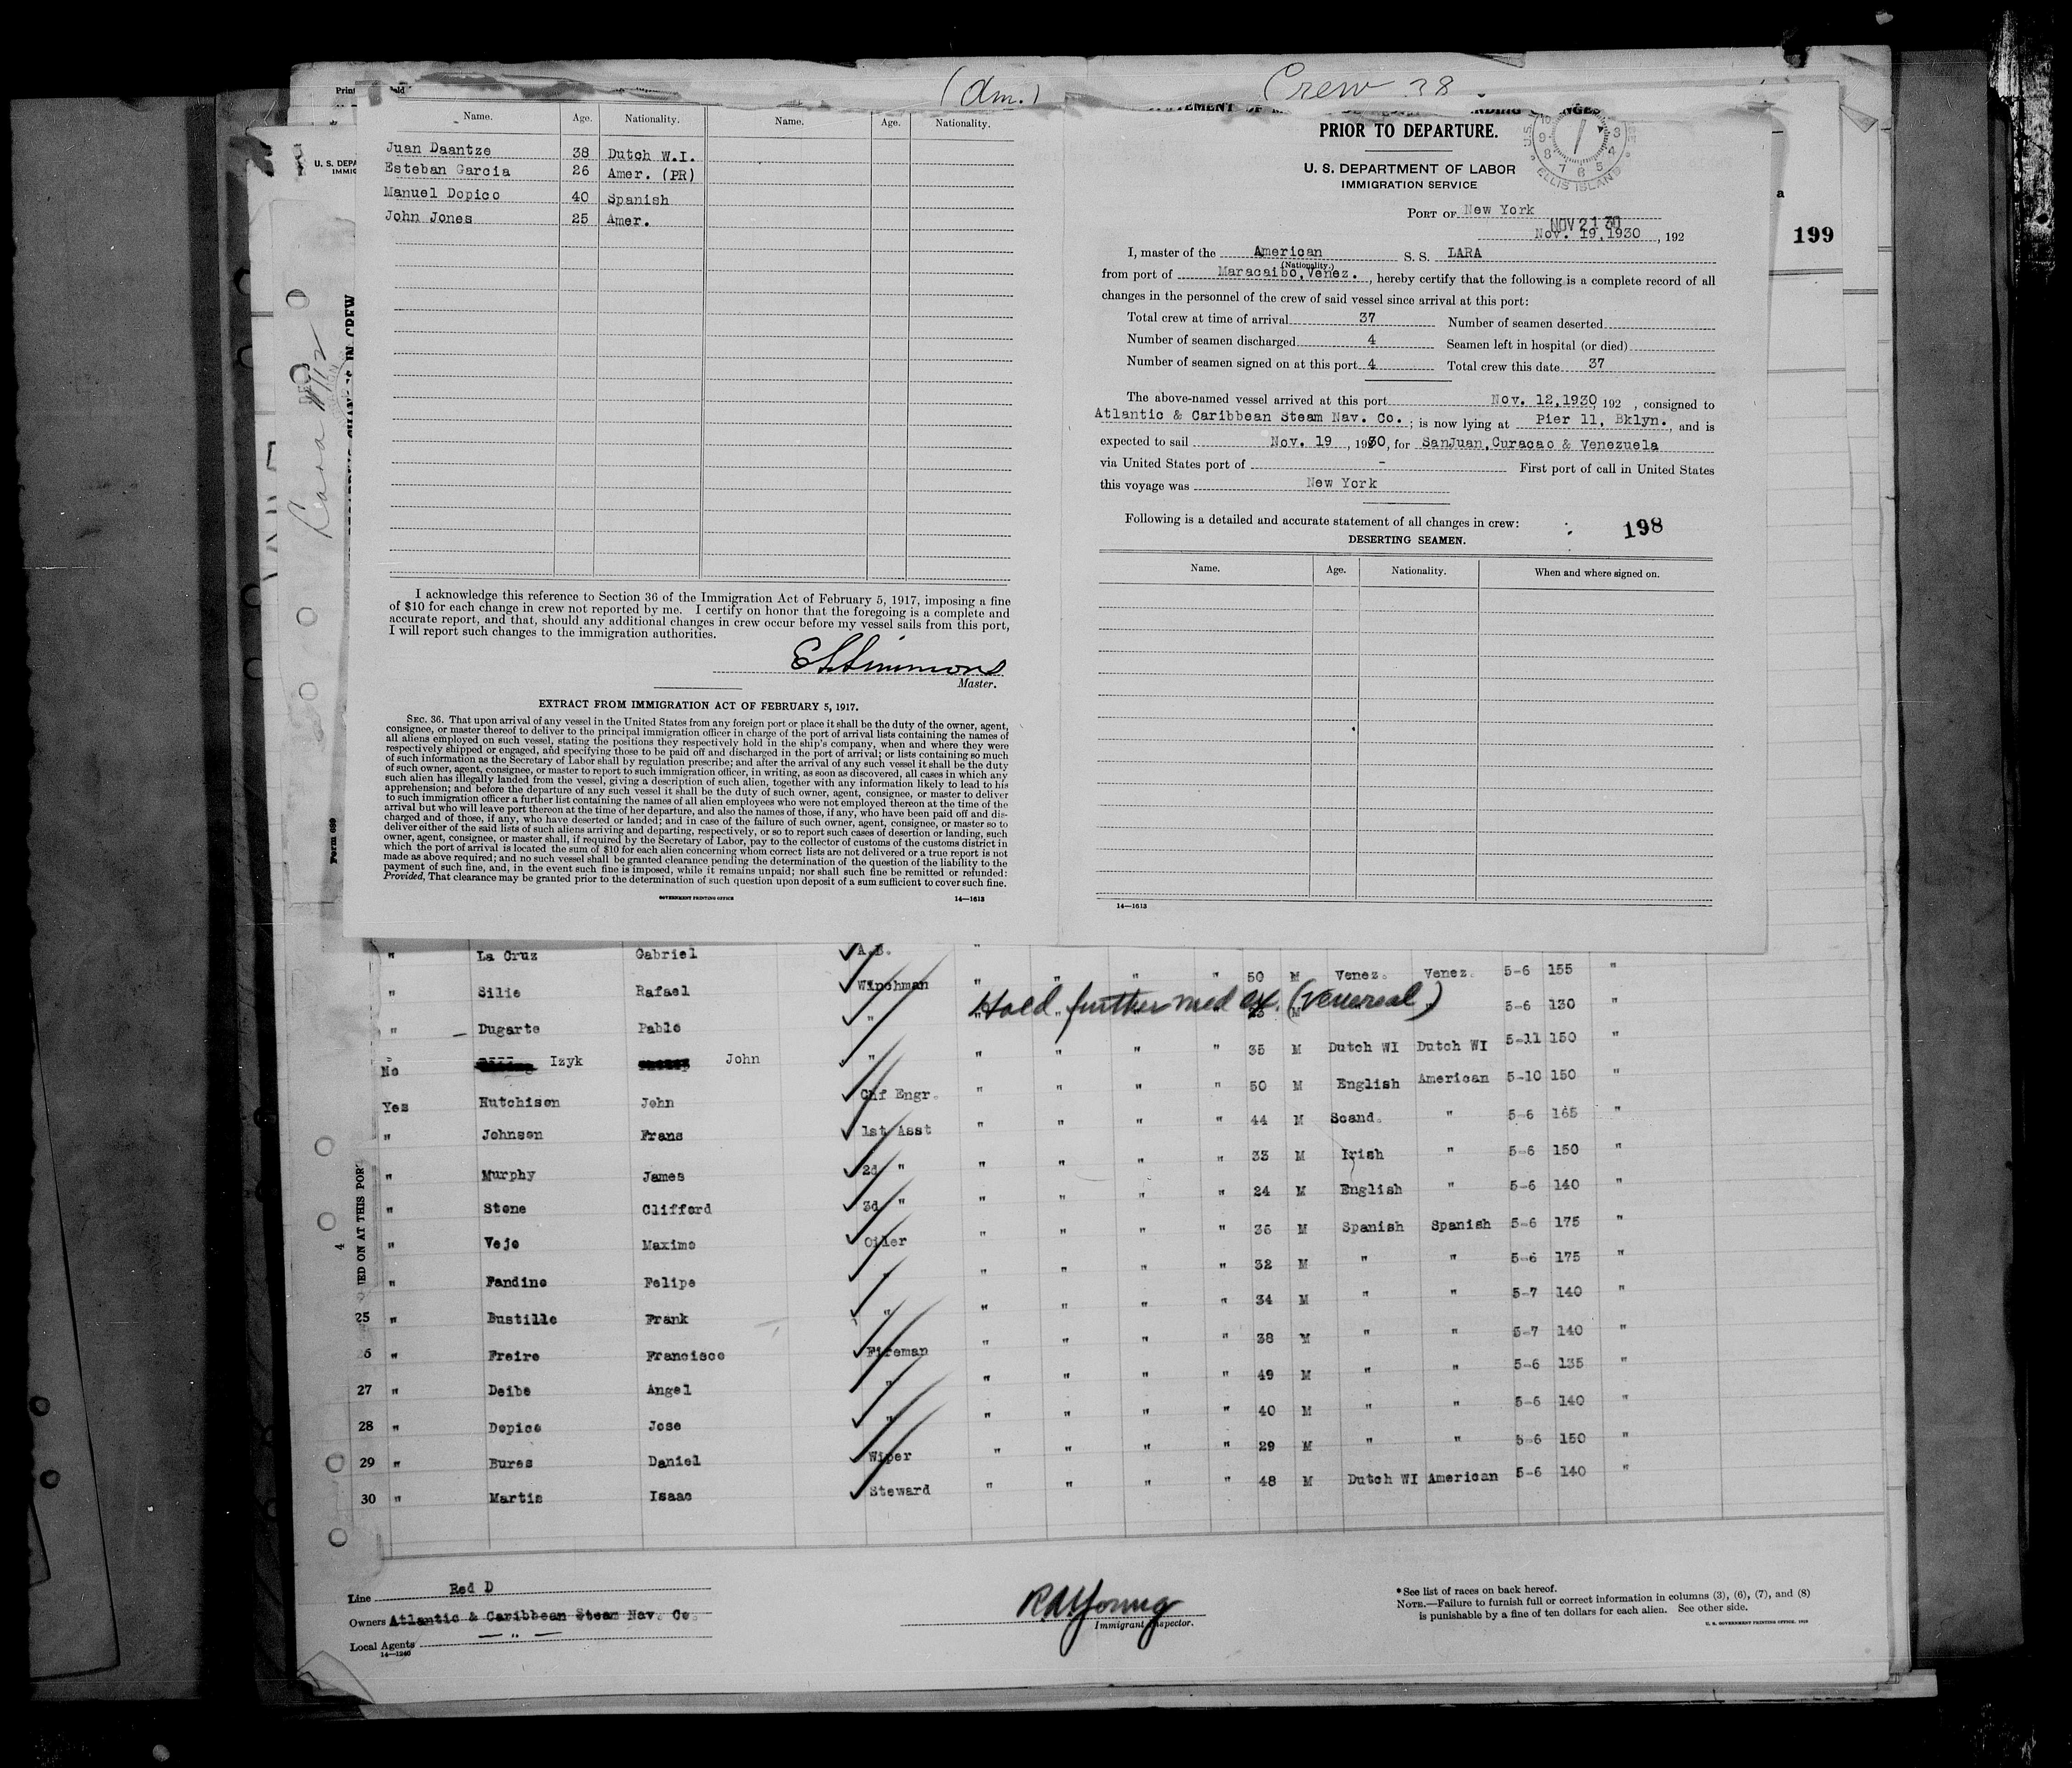 (Am.)
Crew 38
Name. Age. Nationality. Name. Age. Nationality.
Juan Daantze 38 Dutch W.I.
Esteban Garcia 26 Amer. (PR)
Manuel Dopico 40 Spanish
John Jones 25 Amer.
I acknowledge this reference to Section 36 of the Immigration Act of February 5, 1917, imposing a fine
of $10 for each change in crew not reported by me. I certify on honor that the foregoing is a complete and
accurate report, and that, should any additional changes in crew occur before my vessel sails from this port,
I will report such changes to the immigration authorities.
E Simmons
Master.
EXTRACT FROM IMMIGRATION ACT OF FEBRUARY 5, 1917.
SEC. 36. That upon arrival of any vessel in the United States from any foreign port or place it shall be the duty of the owner, agent,
consignee, or master thereof to deliver to the principal immigration officer in charge of the port of arrival lists containing the names of
all aliens employed on such vessel, stating the positions they respectively hold in the ship's company, when and where they were
respectively shipped or engaged, and specifying those to be paid off and discharged in the port of arrival; or lists containing so much
of such information as the Secretary of Labor shall by regulation prescribe; and after the arrival of any such vessel it shall be the duty
of such owner, agent, consignee, or master to report to such immigration officer, in writing, as soon as discovered, all cases in which any
such alien has illegally landed from the vessel, giving a description of such alien, together with any information likely to lead to his
apprehension; and before the departure of any such vessel it shall be the duty of such owner, agent, consignee, or master to deliver
to such immigration officer a further list containing the names of all alien employees who were not employed thereon at the time of the
arrival but who will leave port thereon at the time of her departure, and also the names of those, if any, who have been paid off and dis-
charged and of those, if any, who have deserted or landed; and in case of the failure of such owner, agent, consignee, or master so to
deliver either of the said lists of such aliens arriving and departing, respectively, or so to report such cases of desertion or landing, such
owner, agent, consignee, or master shall, if required by the Secretary of Labor, pay to the collector of customs of the customs district in
which the port of arrival is located the sum of $10 for each alien concerning whom correct lists are not delivered or a true report is not
made as above required; and no such vessel shall be granted clearance pending the determination of the question of the liability to the
payment of such fine, and, in the event such fine is imposed, while it remains unpaid; nor shall such fine be remitted or refunded:
Provided, That clearance may be granted prior to the determination of such question upon deposit of a sum sufficient to cover such fine.
GOVERNMENT PRINTING OFFICE 14—1613
PRIOR TO DEPARTURE.
U. S. DEPARTMENT OF LABOR
IMMIGRATION SERVICE
ELLIS ISLAND
PORT OF New York
NOV 21 30
Nov. 19,1930, 192
199
I, master of the American S. S. LARA
(Nationality.)
from port of Maracaibo,Venez., hereby certify that the following is a complete record of all
changes in the personnel of the crew of said vessel since arrival at this port:
Total crew at time of arrival 37 Number of seamen deserted
Number of seamen discharged 4 Seamen left in hospital (or died)
Number of seamen signed on at this port 4 Total crew this date 37
The above-named vessel arrived at this port Nov. 12,1930 192 , consigned to
Atlantic & Caribbean Steam Nav. Co.; is now lying at Pier 11, Bklyn., and is
expected to sail Nov. 19, 1930, for SanJuan,Curacao & Venezuela
via United States port of - First port of call in United States
this voyage was New York
Following is a detailed and accurate statement of all changes in crew:
198
DESERTING SEAMEN.
Name. Age. Nationality. When and where signed on.
14—1613
Form 689
" La Cruz Gabriel A.B. "
" Silie Rafael Winchman " " " " 50 M Venez. Venez. 5-6 155 "
" Dugarte Pablo " Hold further med ex. (Venereal) 5-6 130 "
No Izyk John " " " " " 35 M Dutch WI Dutch WI 5-11 150 "
Yes Hutchison John Chf Engr. " " " " 50 M English American 5-10 150 "
" Johnson Frans 1st Asst " " " " 44 M Scand. " 5-6 165 "
" Murphy James 2d " " " " " 33 M Irish " 5-6 150 "
" Stone Clifford 3d " " " " " 24 M English " 5-6 140 "
" Vejo Maximo Oiler " " " " 36 M Spanish Spanish 5-6 175 "
" Fandino Felipe " " " " " 32 M " " 5-6 175 "
25 " Bustillo Frank " " " " " 34 M " " 5-7 140 "
26 " Freire Francisco Fireman " " " " 38 M " " 5-7 140 "
27 " Deibe Angel " " " " " 49 M " " 5-6 135 "
28 " Dopico Jose " " " " " 40 M " " 5-6 140 "
29 " Bures Daniel Wiper " " " " 29 M " " 5-6 150 "
30 " Martis Isaac Steward " " " " 48 M Dutch WI American 5-6 140 "
Line Red D
Owners Atlantic & Caribbean Steam Nav. Co.
Local Agents — " —
14—1240
R A Young
Immigrant Inspector.
*See list of races on back hereof.
NOTE.—Failure to furnish full or correct information in columns (3), (6), (7), and (8)
is punishable by a fine of ten dollars for each alien. See other side.
U. S. GOVERNMENT PRINTING OFFICE